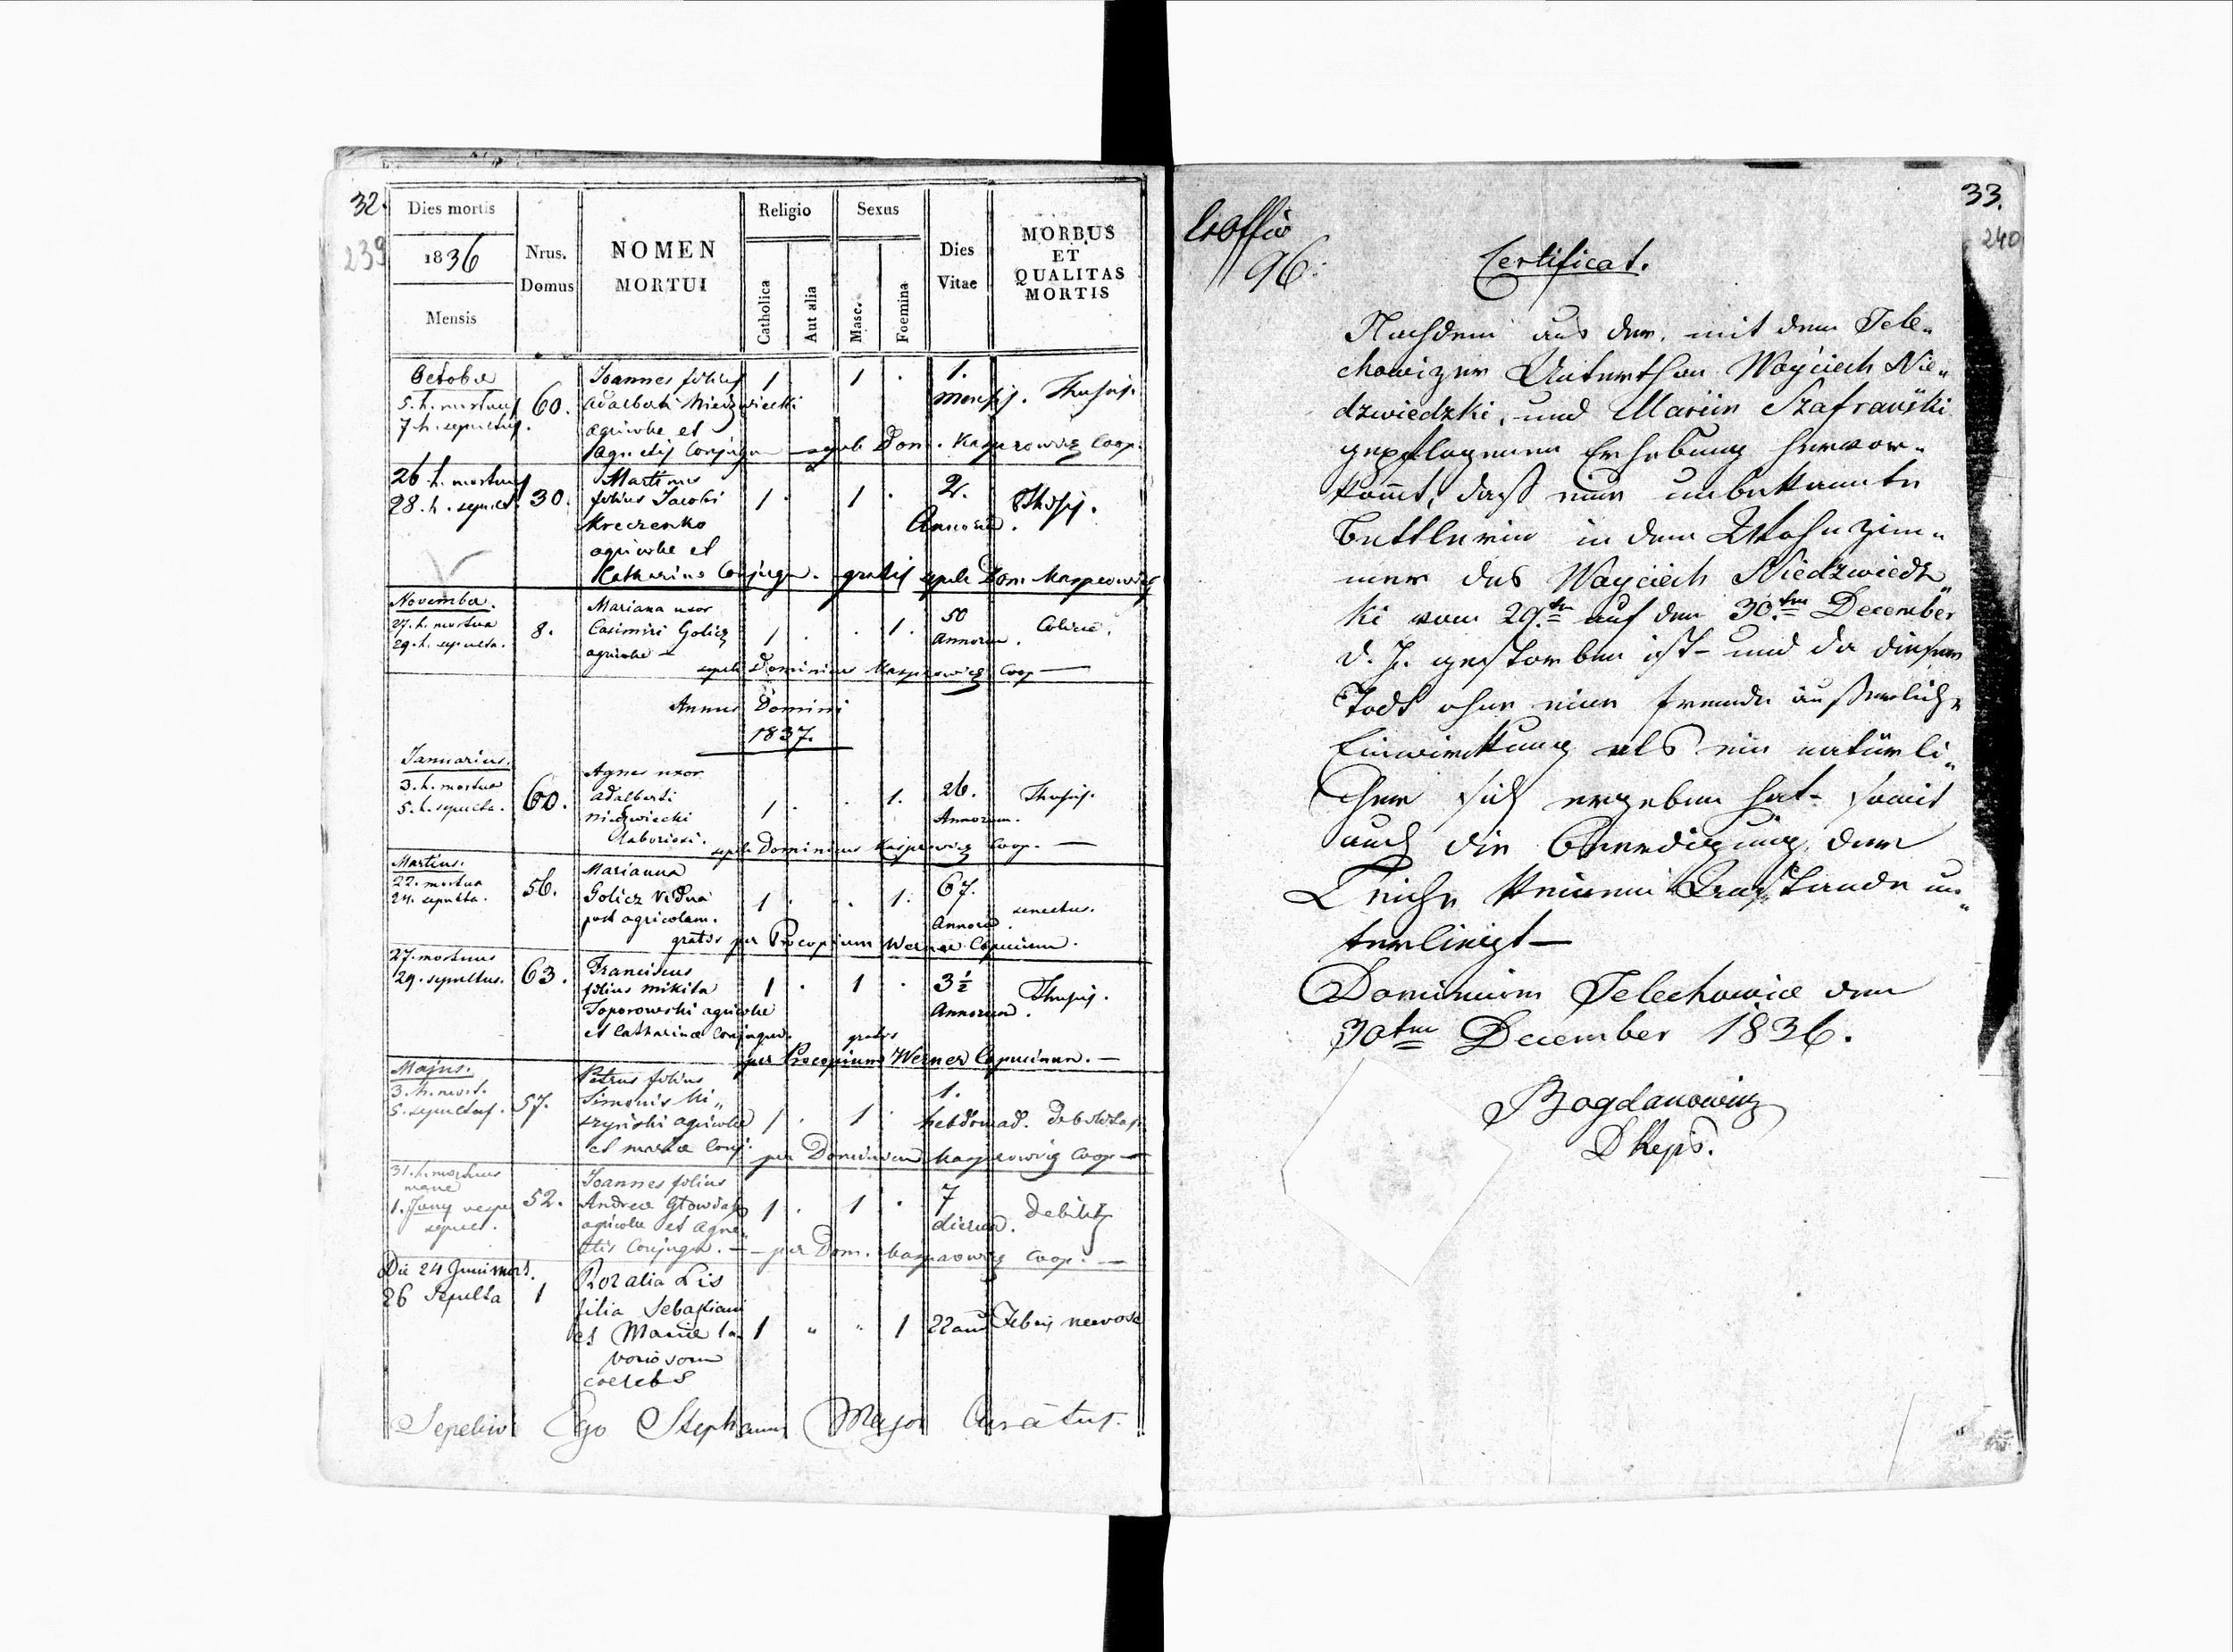 32.
239
Dies mortis
1836
Mensis
Nrus.
Domus
NOMEN
MORTUI
Religio
Catholica
Aut alia
Sexus
Masc.
Foemina
Dies
Vitae
MORBUS
ET
QUALITAS
MORTIS
October
5. h. mortuus
7 h. sepultus.
60.
Joannes filius
Adalberti Niedzwiecki
agricolae et
Agnetis Conjugum
1
1 .
1.
Mensis.
sepeli Dom. Kasprowicz Coop.
26 h. mortuus
28. h. sepult.
30.
Martinus
filius Jacobi
Kreczenko
agricolae et
Catharina Conjugum. gratis sepeli Dom Kasprowicz
1 .
1 .
2.
Annorum.
November.
27. h. mortua
29. h. sepulta.
8.
Mariana uxor
Casimiri Golicz
agricolae
1 .
. 1.
50
Annorum.
sepeli Dominicus Kasprowicz Coop
Annus Domini
1837.
Januarius.
3. h. mortua
5. h. sepulta.
60.
Agnes uxor
Adalberti
Niedzwiecki
laboriosi.
1 .
. 1.
26.
Annorum.
sepeli Dominicus Kasprowicz Coop.
Martius.
22. mortua
24. sepulta.
56.
Marianna
Golicz vidua
post agricolam.
1 .
. 1.
67.
Annorum.
senectus.
gratis per Procopium Werner Capucinum.
27. mortuus
29. sepultus.
63.
Franciscus
filius Mikita
Toporowski agricolae
et Catharinae Conjugum.
1 .
1 .
3 ½
Annorum.
gratis
per Procopium Werner Capucinum.
Majus.
3. h. mort.
5. sepultus.
57.
Petrus filius
Simonis Ki„
szyński agricolae
et Mariae Conj.
1 .
1
1.
hebdomad.
debilitas
per Dominicum Kasprowicz Coop
31. h. mortuus
mane
1. Juny vespe
sepult.
52.
Joannes filius
Andreae
agricolae et Agne„
tis Conjugum. — per Dom. Kasprowicz Coop.
1 .
1 .
7
dierum.
debilit
Die 24 Juni mort.
26 Sepulta
1
Rozalia Lis
filia Sebastiani
et Mariae la
boriosorum
coelebs
1 „ „ 1
22 ann
Febris nervosa
Sepelivi Ego Stephanus Major Curatus.
33.
240
Exoffio
96:
Certificat.
Nachdem aus der, mit dem Tele„
chowizer Unterthan Woyciech Nie„
dzwiedzki, und Marcin Szafrański
gepflogenen Erhebung hervor„
kommt, daß eine unbekannte
Bettlerin in dem Wohnzim„
mer des Woyciech Niedzwiedz„
ki vom 29.ten auf den 30.ten December
d. J. gestorben ist – und da dieser
Todt ohne eine fremde äußerliche
Einwirkung als ein natürli„
cher sich ergeben hat – somit
auch die Beerdigung der
Leiche keinem Anstande un„
terliegt —
Dominium Telechowice den
30ten December 1836.
Bogdanowicz